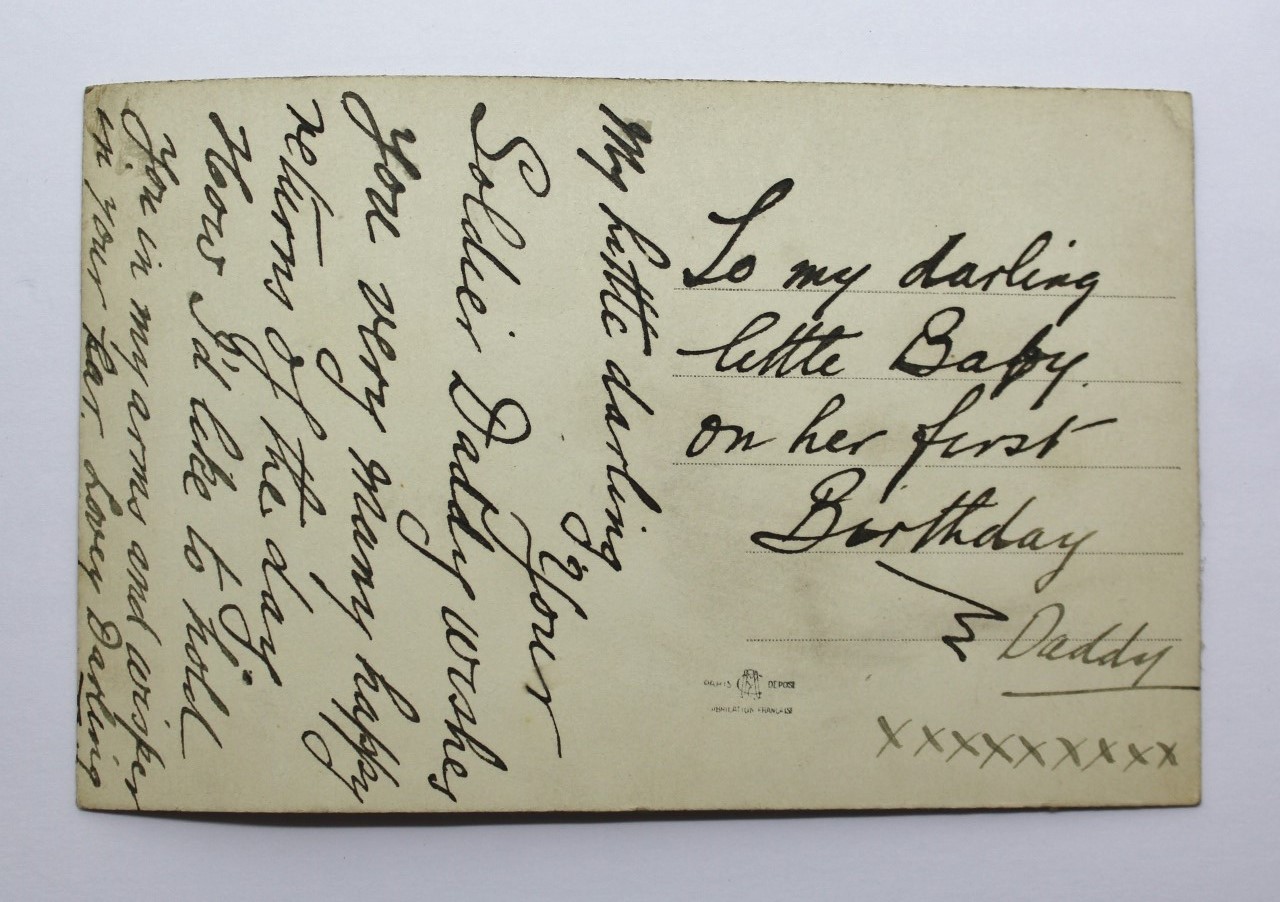 My little darling
Your
Soldier Daddy wishes
you very many happy
returns of the day
How I'd like to hold
You in my arms and wisper
in your Ear. Lovey Darling
To my darling
little Baby.
on her first
Birthday
Daddy
xxxxxxxxx
PARIS DEPOSE
FABRICATION FRANCAISE